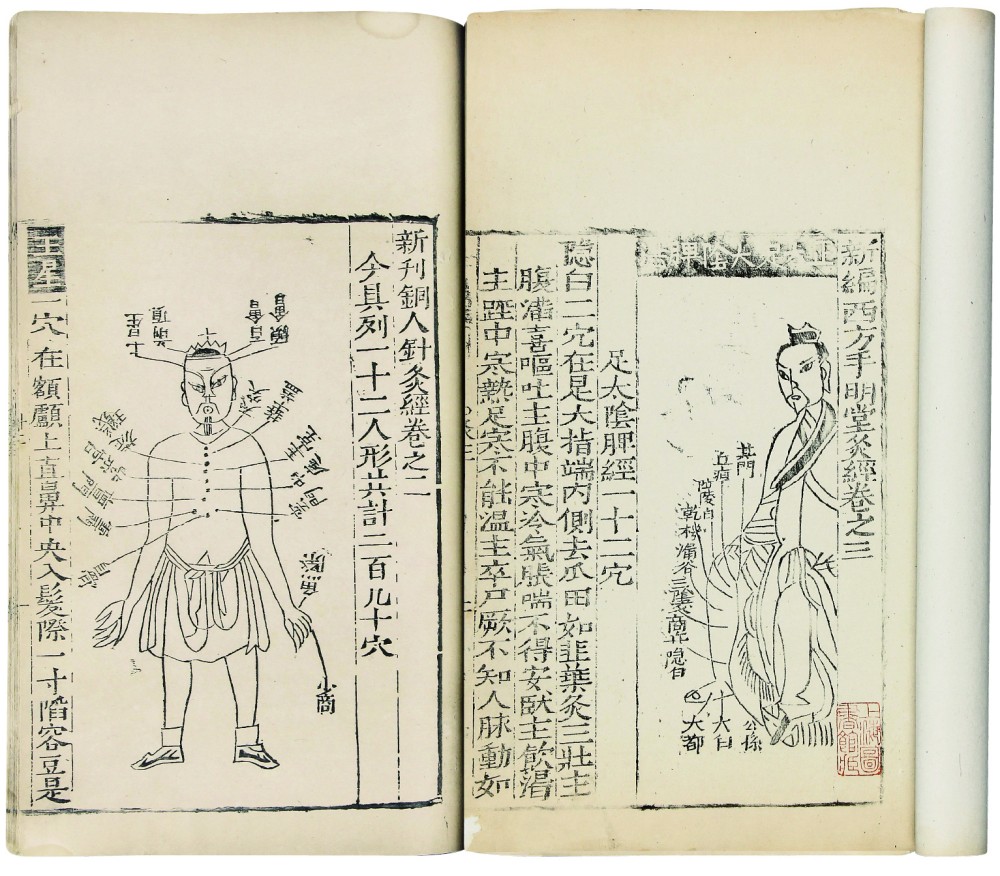 新編西方手明堂灸經卷之三
正人足太陰脾經
其門
五瘨
陰陵白
乾機
漏谷
三陰交
商丘
隐白
公孫
大白
大都
足太陰脾經一十二穴
隠白二穴在足大指端内側去爪甲如韭葉灸三壯主
腹滿喜嘔吐主腹中寒冷氣脹喘不得安臥主飲渴
主踁中寒熱足寒不能温主卒尸厥不知人脉動如
上海圖書館藏
新刋銅人針灸經卷之二
今具列一十二人形共計二百九十穴
顖會
百會
前頂
上星
華盖
魚際
少商
上星
一穴在額顱上直鼻中央入髮際一寸陷容豆是